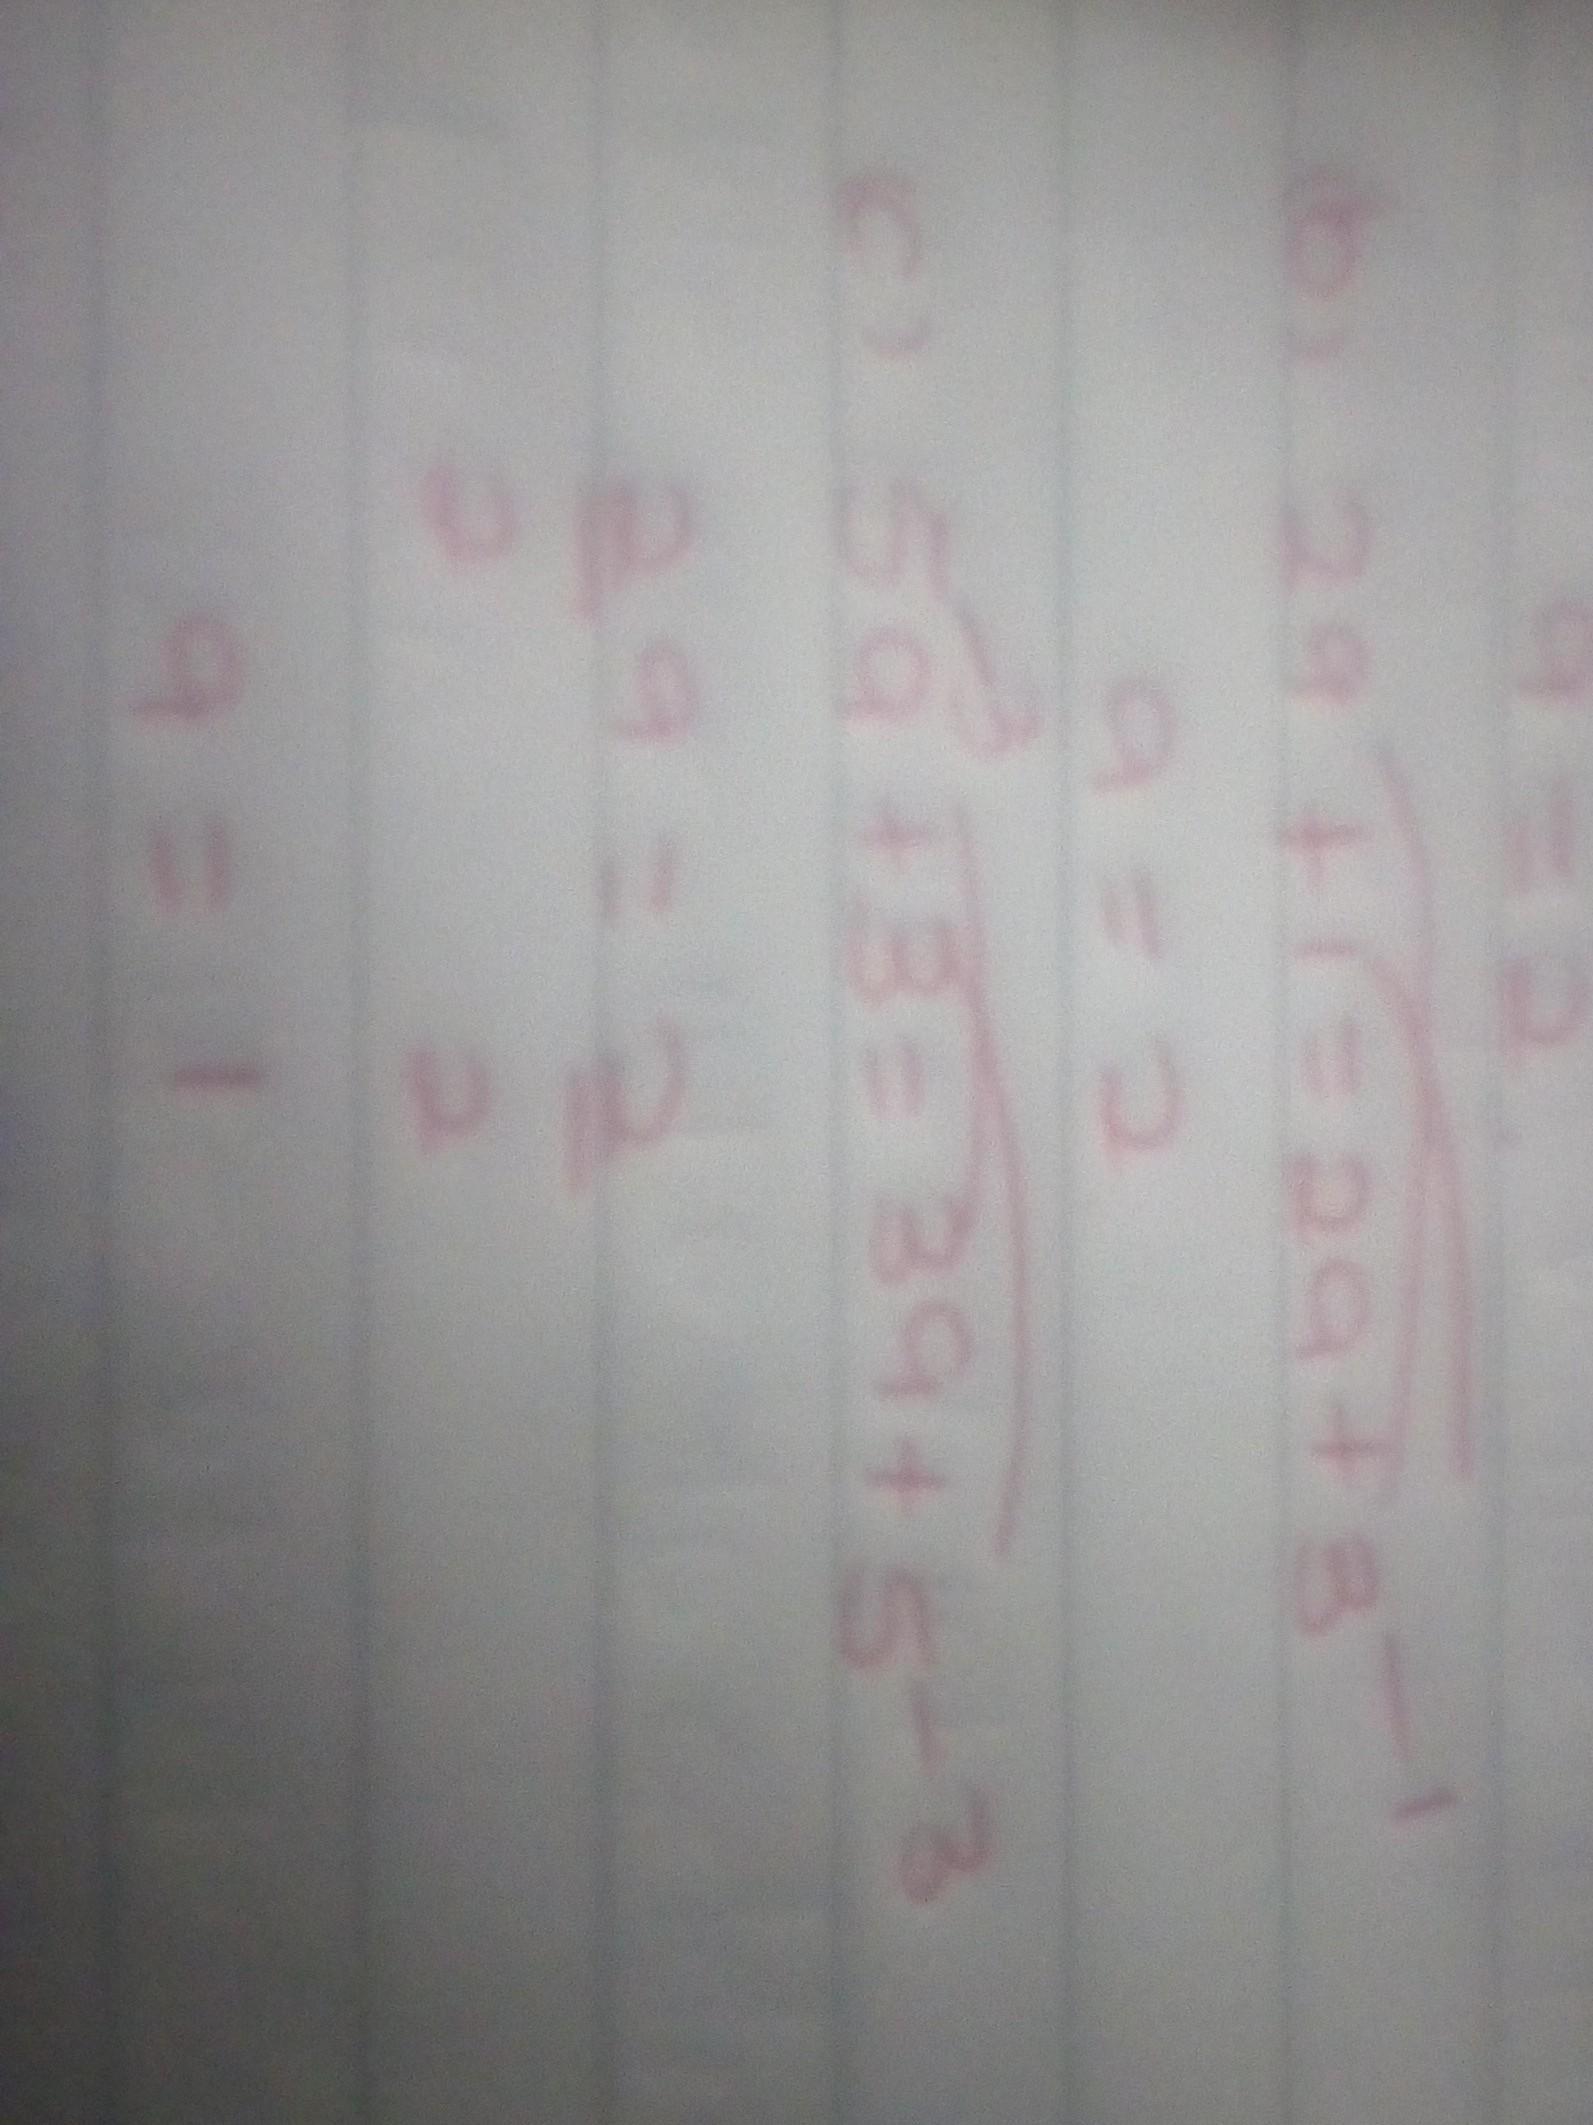 a = 2
b) 2a + 1 = 2a + 3 - 1
a = 2
c) 5a + 3 = 3a + 5 - 3
2a = 2
2 2
a = 1